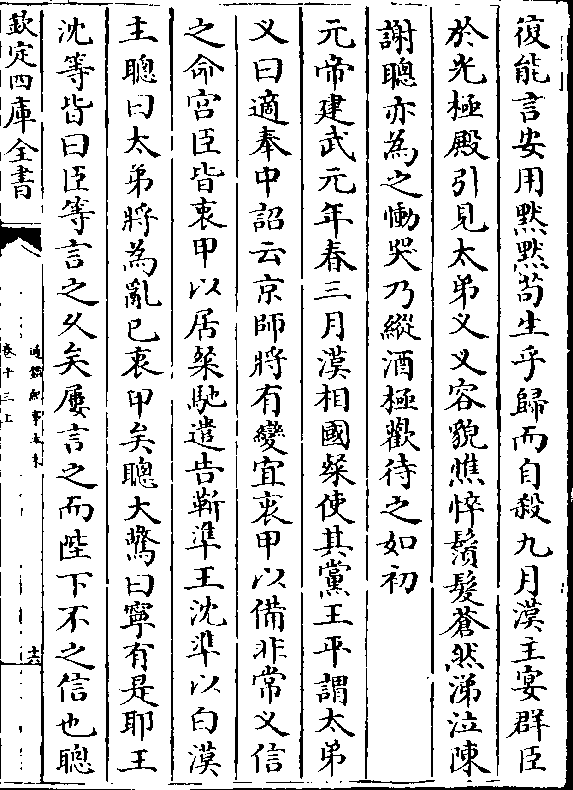 復能言安用黙黙苟生乎歸而自殺九月漢主宴群臣
於光極殿引見太弟乂乂容貌憔悴鬚髮蒼然涕泣陳
謝聰亦為之慟哭乃縱酒極歡待之如初
元帝建武元年春三月漢相國粲使其黨王平謂太弟
乂曰適奉中詔云京師將有變宜衷甲以備非常乂信
之命宫臣皆衷甲以居粲馳遣告靳準王沈準以白漢
主聰曰太弟將為亂已衷甲矣聰大驚曰寧有是耶王
沈等皆曰臣等言之久矣屢言之而陛下不之信也聰
欽定四庫全書
通鑑紀事本末
卷十三上
十六